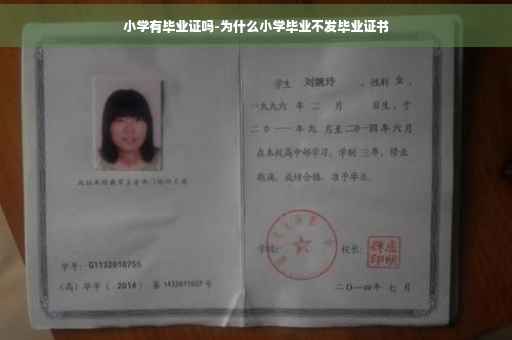 小学有毕业证吗-为什么小学毕业不发毕业证书
学生 刘婉玲 ，性别 女 ，
一九九六 年 二 月 日生，于
二〇一一 年 九 月至 二〇一四 年 六 月
在本校高中部学习，学制 三 年，修业
期满，成绩合格，准予毕业。
学号： G1132010755
（高）毕字（ 2014 ）第 1432011027 号
学校：
校长：
二〇一四 年 七 月